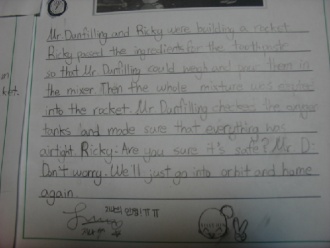 Mr. Dunfilling and Ricky were building a rocket
Ricky passed the ingredients for the
so that Mr. Dunfilling could weigh and pour them in
the mixer. Then the whole mixture was
into the rocket. Mr Dunfilling checked the
tanks and made sure that everything was
airtight Ricky: Are you sure it's safe? Mr. D:
Don't worry. We'll just go into orbit and hume
again.